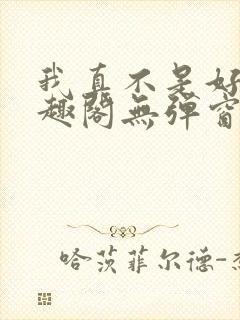 我真不是好
趣閣無彈窗
哈茨菲尔德-杰